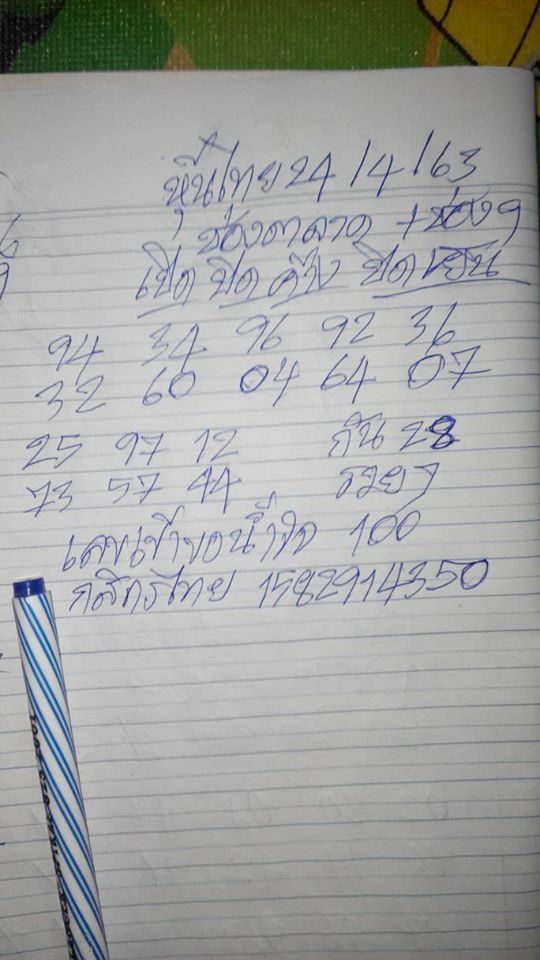 หุ้นไทย 24/4/63
ช่องตลาด + ช่อง 9
เปิด ปิด ค้าง ปิดเย็น
94 34 96 92 36
32 60 04 64 07
25 97 12 กัน 28
73 57 44 รวยๆ
เลขเข้าขอน้ำใจ 100
กสิกรไทย 1582914350